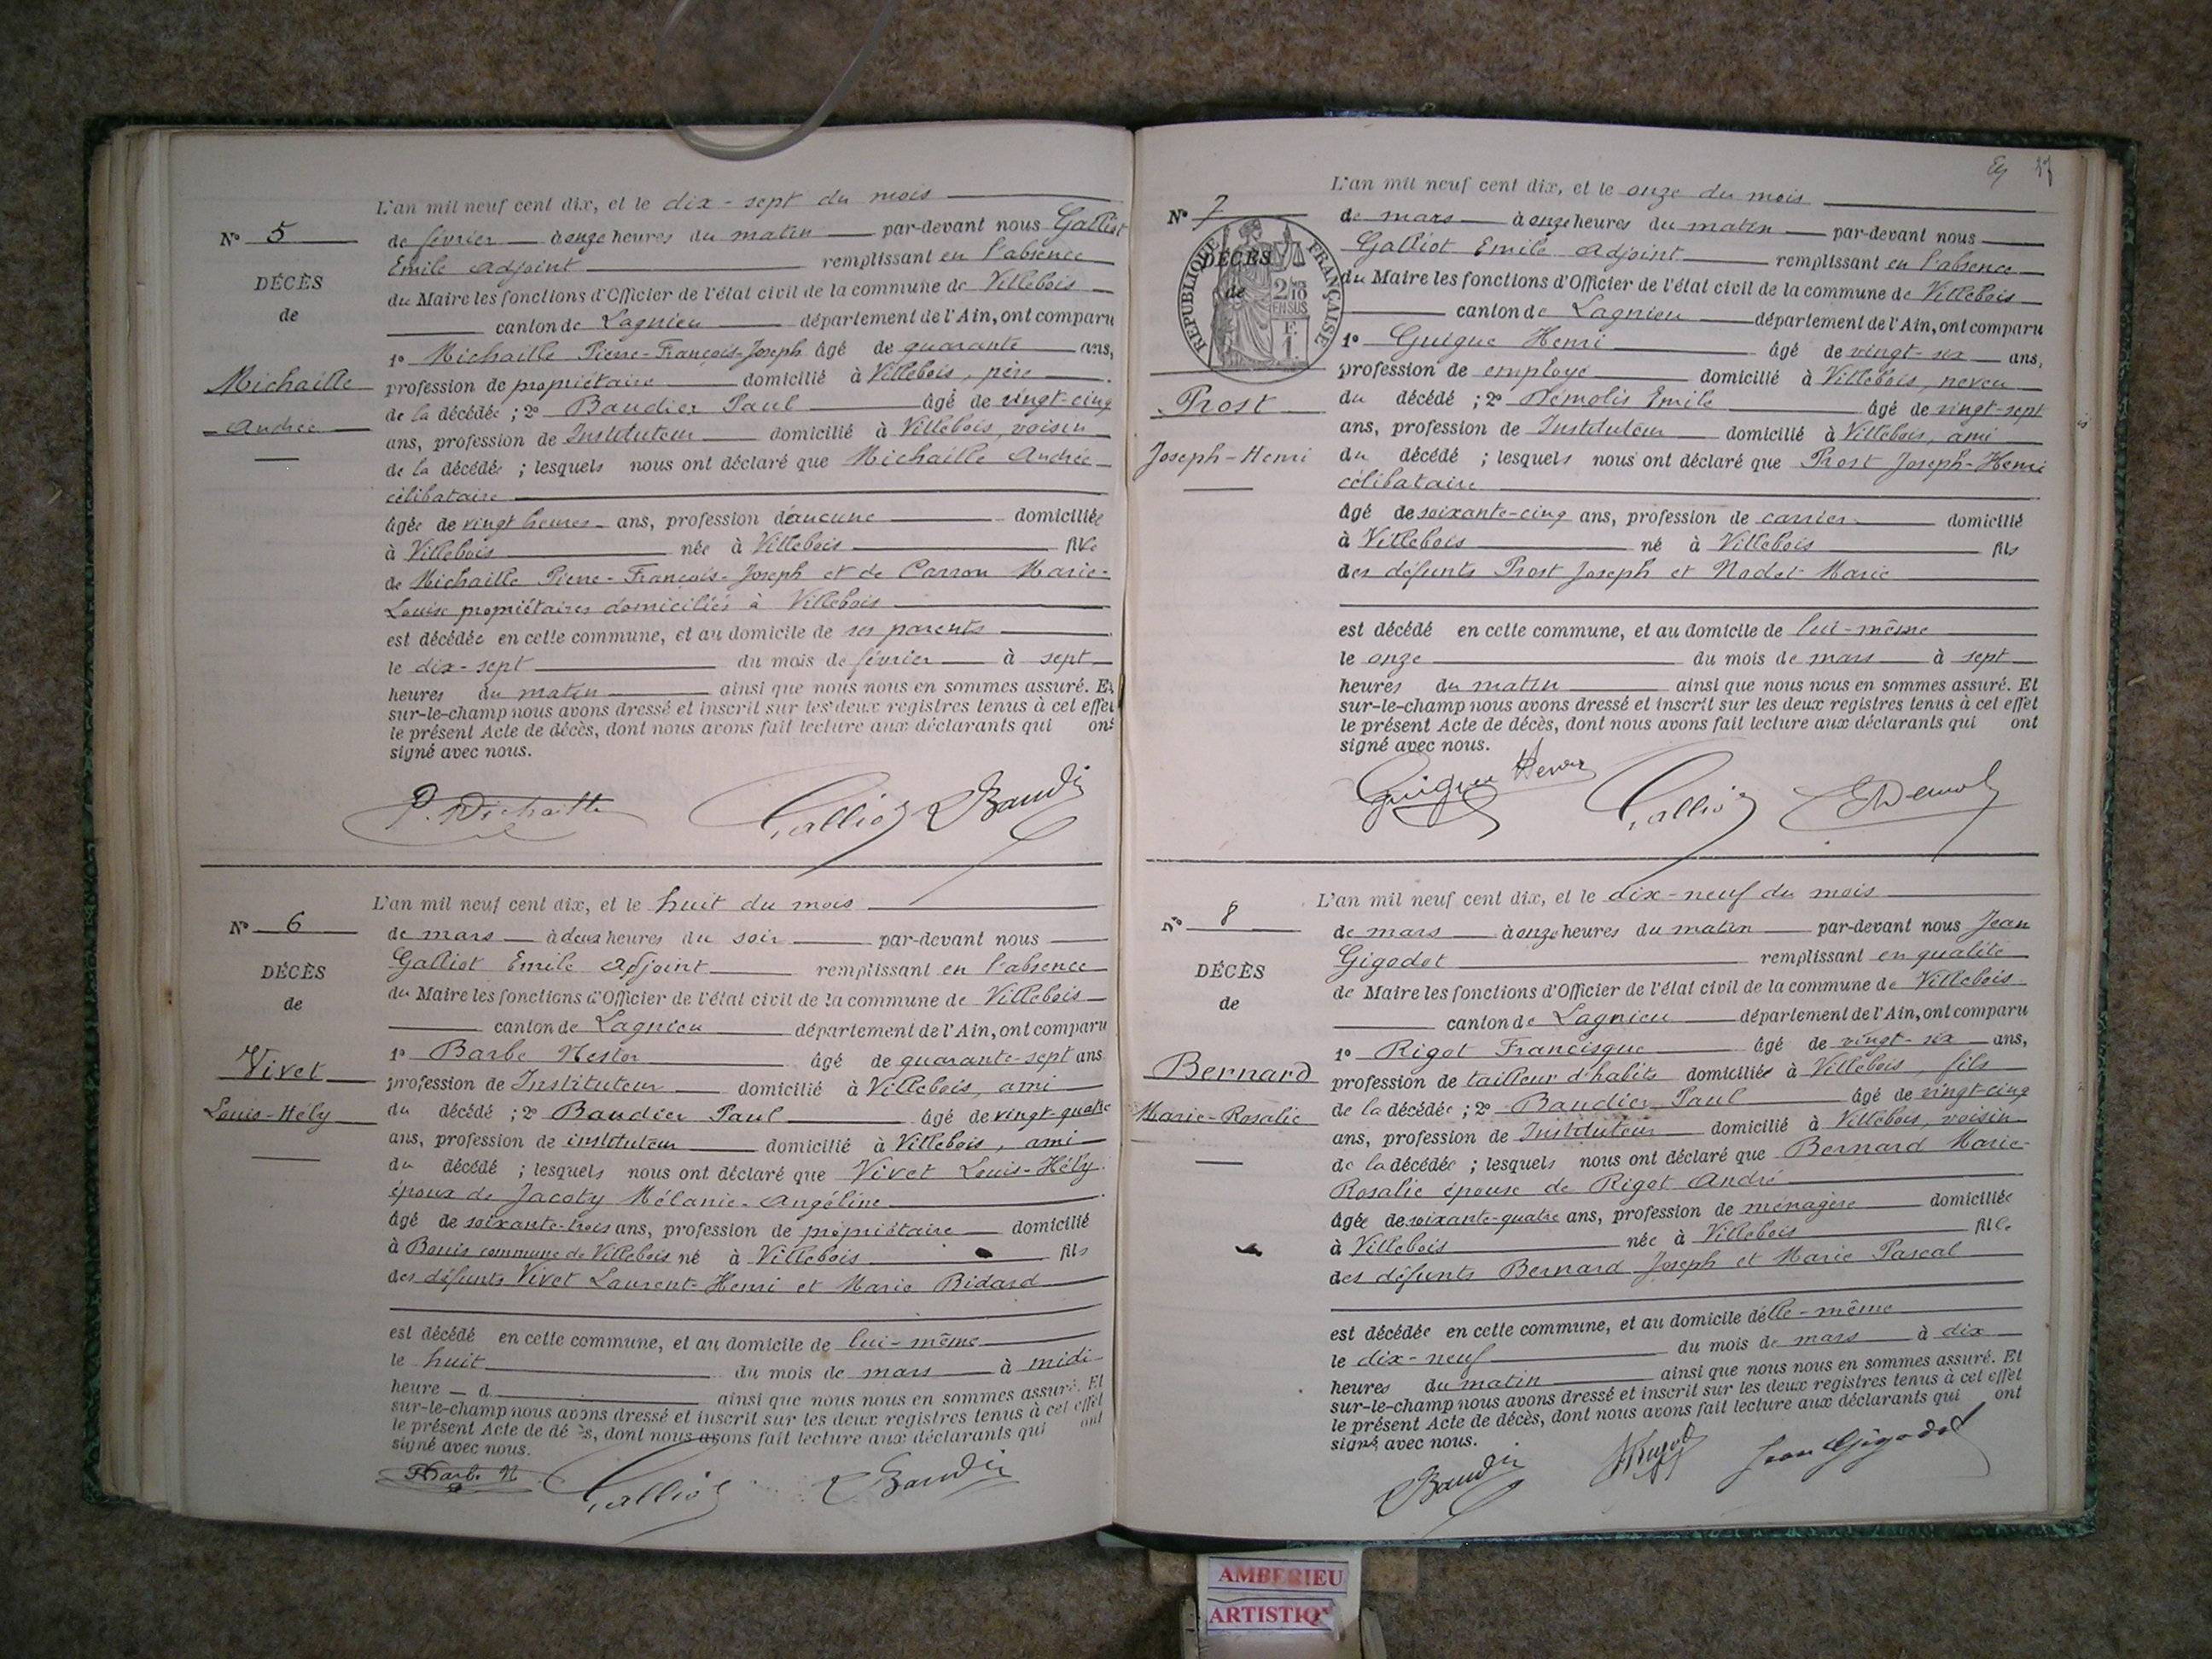 L'an mil neuf cent dix, et le dix-sept du mois
N° 5
de février à onze heures du matin par-devant nous Galliot
Emile Adjoint remplissant en l'absence
DÉCÈS
du Maire les fonctions d'Officier de l'état civil de la commune de Villebois
de
canton de Lagnieu département de l'Ain, ont comparu
1° Michaille Pierre-François-Joseph âgé de quarante ans,
Michaille
profession de propriétaire domicilié à Villebois, père
de la décédée ; 2° Baudier Paul âgé de vingt-cinq
Andrée
ans, profession de Instituteur domicilié à Villebois, voisin
de la décédée ; lesquels nous ont déclaré que Michaille Andrée
célibataire
âgée de vingt heures ans, profession d'aucune domiciliée
à Villebois née à Villebois fille
de Michaille Pierre-François-Joseph et de Carron Marie-
Louise propriétaires domiciliés à Villebois
est décédée en cette commune, et au domicile de ses parents
le dix-sept du mois de février à sept
heures du matin ainsi que nous nous en sommes assuré. Et
sur-le-champ nous avons dressé et inscrit sur les deux registres tenus à cet effet
le présent Acte de décès, dont nous avons fait lecture aux déclarants qui ont
signé avec nous.
P. Michaille Galliot Baudier
L'an mil neuf cent dix, et le huit du mois
N° 6
de mars à deux heures du soir par-devant nous
Galliot Emile Adjoint remplissant en l'absence
DÉCÈS
du Maire les fonctions d'Officier de l'état civil de la commune de Villebois
de
canton de Lagnieu département de l'Ain, ont comparu
1° Barbe Nestor âgé de quarante-sept ans
Vivet
profession de Instituteur domicilié à Villebois, ami
Louis-Hély
du décédé ; 2° Baudier Paul âgé de vingt-quatre
ans, profession de instituteur domicilié à Villebois, ami
du décédé ; lesquels nous ont déclaré que Vivet Louis-Hély
époux de Jacoty Mélanie-Angéline
âgé de soixante-trois ans, profession de propriétaire domicilié
à Bouis commune de Villebois né à Villebois fils
des défunts Vivet Laurent-Henri et Marie Bidard
est décédé en cette commune, et au domicile de lui-même
le huit du mois de mars à midi
heure d ainsi que nous nous en sommes assuré. Et
sur-le-champ nous avons dressé et inscrit sur les deux registres tenus à cet effet
le présent Acte de décès, dont nous avons fait lecture aux déclarants qui ont
signé avec nous.
Barbe N Galliot Baudier
L'an mil neuf cent dix, et le onze du mois
N° 7
de mars à onze heures du matin par-devant nous
Galliot Emile Adjoint remplissant en l'absence
RÉPUBLIQUE FRANÇAISE
DÉCÈS
du Maire les fonctions d'Officier de l'état civil de la commune de Villebois
de
2/10 EN SUS
1 F.
canton de Lagnieu département de l'Ain, ont comparu
1° Guigue Henri âgé de vingt-six ans,
profession de employé domicilié à Villebois, neveu
Prost
du décédé ; 2° Démolis Emile âgé de vingt-sept
ans, profession de Instituteur domicilié à Villebois, ami
Joseph-Henri
du décédé ; lesquels nous ont déclaré que Prost Joseph-Henri
célibataire
âgé de soixante-cinq ans, profession de carrier domicilié
à Villebois né à Villebois fils
des défunts Prost Joseph et Nodet Marie
est décédé en cette commune, et au domicile de lui-même
le onze du mois de mars à sept
heures du matin ainsi que nous nous en sommes assuré. Et
sur-le-champ nous avons dressé et inscrit sur les deux registres tenus à cet effet
le présent Acte de décès, dont nous avons fait lecture aux déclarants qui ont
signé avec nous.
Guigue Henri Galliot
L'an mil neuf cent dix, et le dix-neuf du mois
N° 8
de mars à onze heures du matin par-devant nous Jean
Gigodot remplissant en qualité
DÉCÈS
de Maire les fonctions d'Officier de l'état civil de la commune de Villebois
de
canton de Lagnieu département de l'Ain, ont comparu
1° Rigot Francisque âgé de vingt-six ans,
Bernard
profession de tailleur d'habits domicilié à Villebois, fils
Marie-Rosalie
de la décédée ; 2° Baudier Paul âgé de vingt-cinq
ans, profession de Instituteur domicilié à Villebois, voisin
de la décédée ; lesquels nous ont déclaré que Bernard Marie-
Rosalie épouse de Rigot André
âgée de soixante-quatre ans, profession de ménagère domiciliée
à Villebois née à Villebois fille
des défunts Bernard Joseph et Marie Pascal
est décédée en cette commune, et au domicile d'elle-même
le dix-neuf du mois de mars à dix
heures du matin ainsi que nous nous en sommes assuré. Et
sur-le-champ nous avons dressé et inscrit sur les deux registres tenus à cet effet
le présent Acte de décès, dont nous avons fait lecture aux déclarants qui ont
signé avec nous.
Baudier Jean Gigodot
AMBERIEU
ARTISTIQ